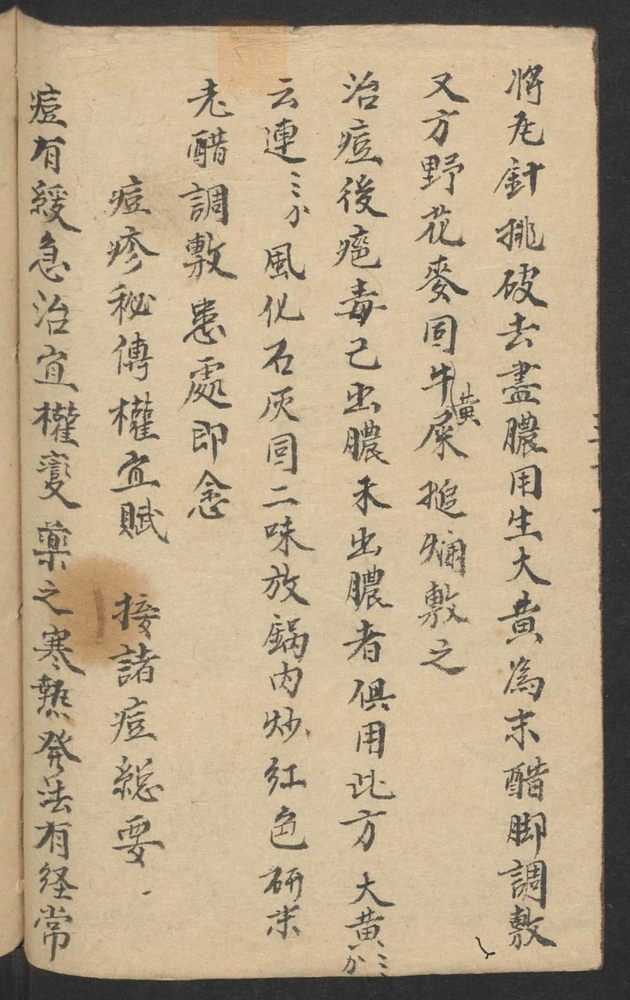 將尤針挑破去盡膿用生大黄為末醋脚調敷
又方野花麥同牛黄屎搥爛敷之
治痘後疤毒已出膿未出膿者俱用此方大黄三分
云連三分風化石灰同二味放鍋内炒紅色研末
老醋調敷患處即念
痘疹秘傳權宜賦 接諸痘緫要
痘有緩急治宜權變藥之寒熱発法有経常